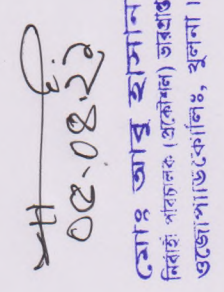 ০৫.০৪.২১
মোঃ আবু হাসান
নির্বাহী পরিচালক (প্রকৌশল) ভারপ্রাপ্ত
ওজোপাডিকোলিঃ, খুলনা।